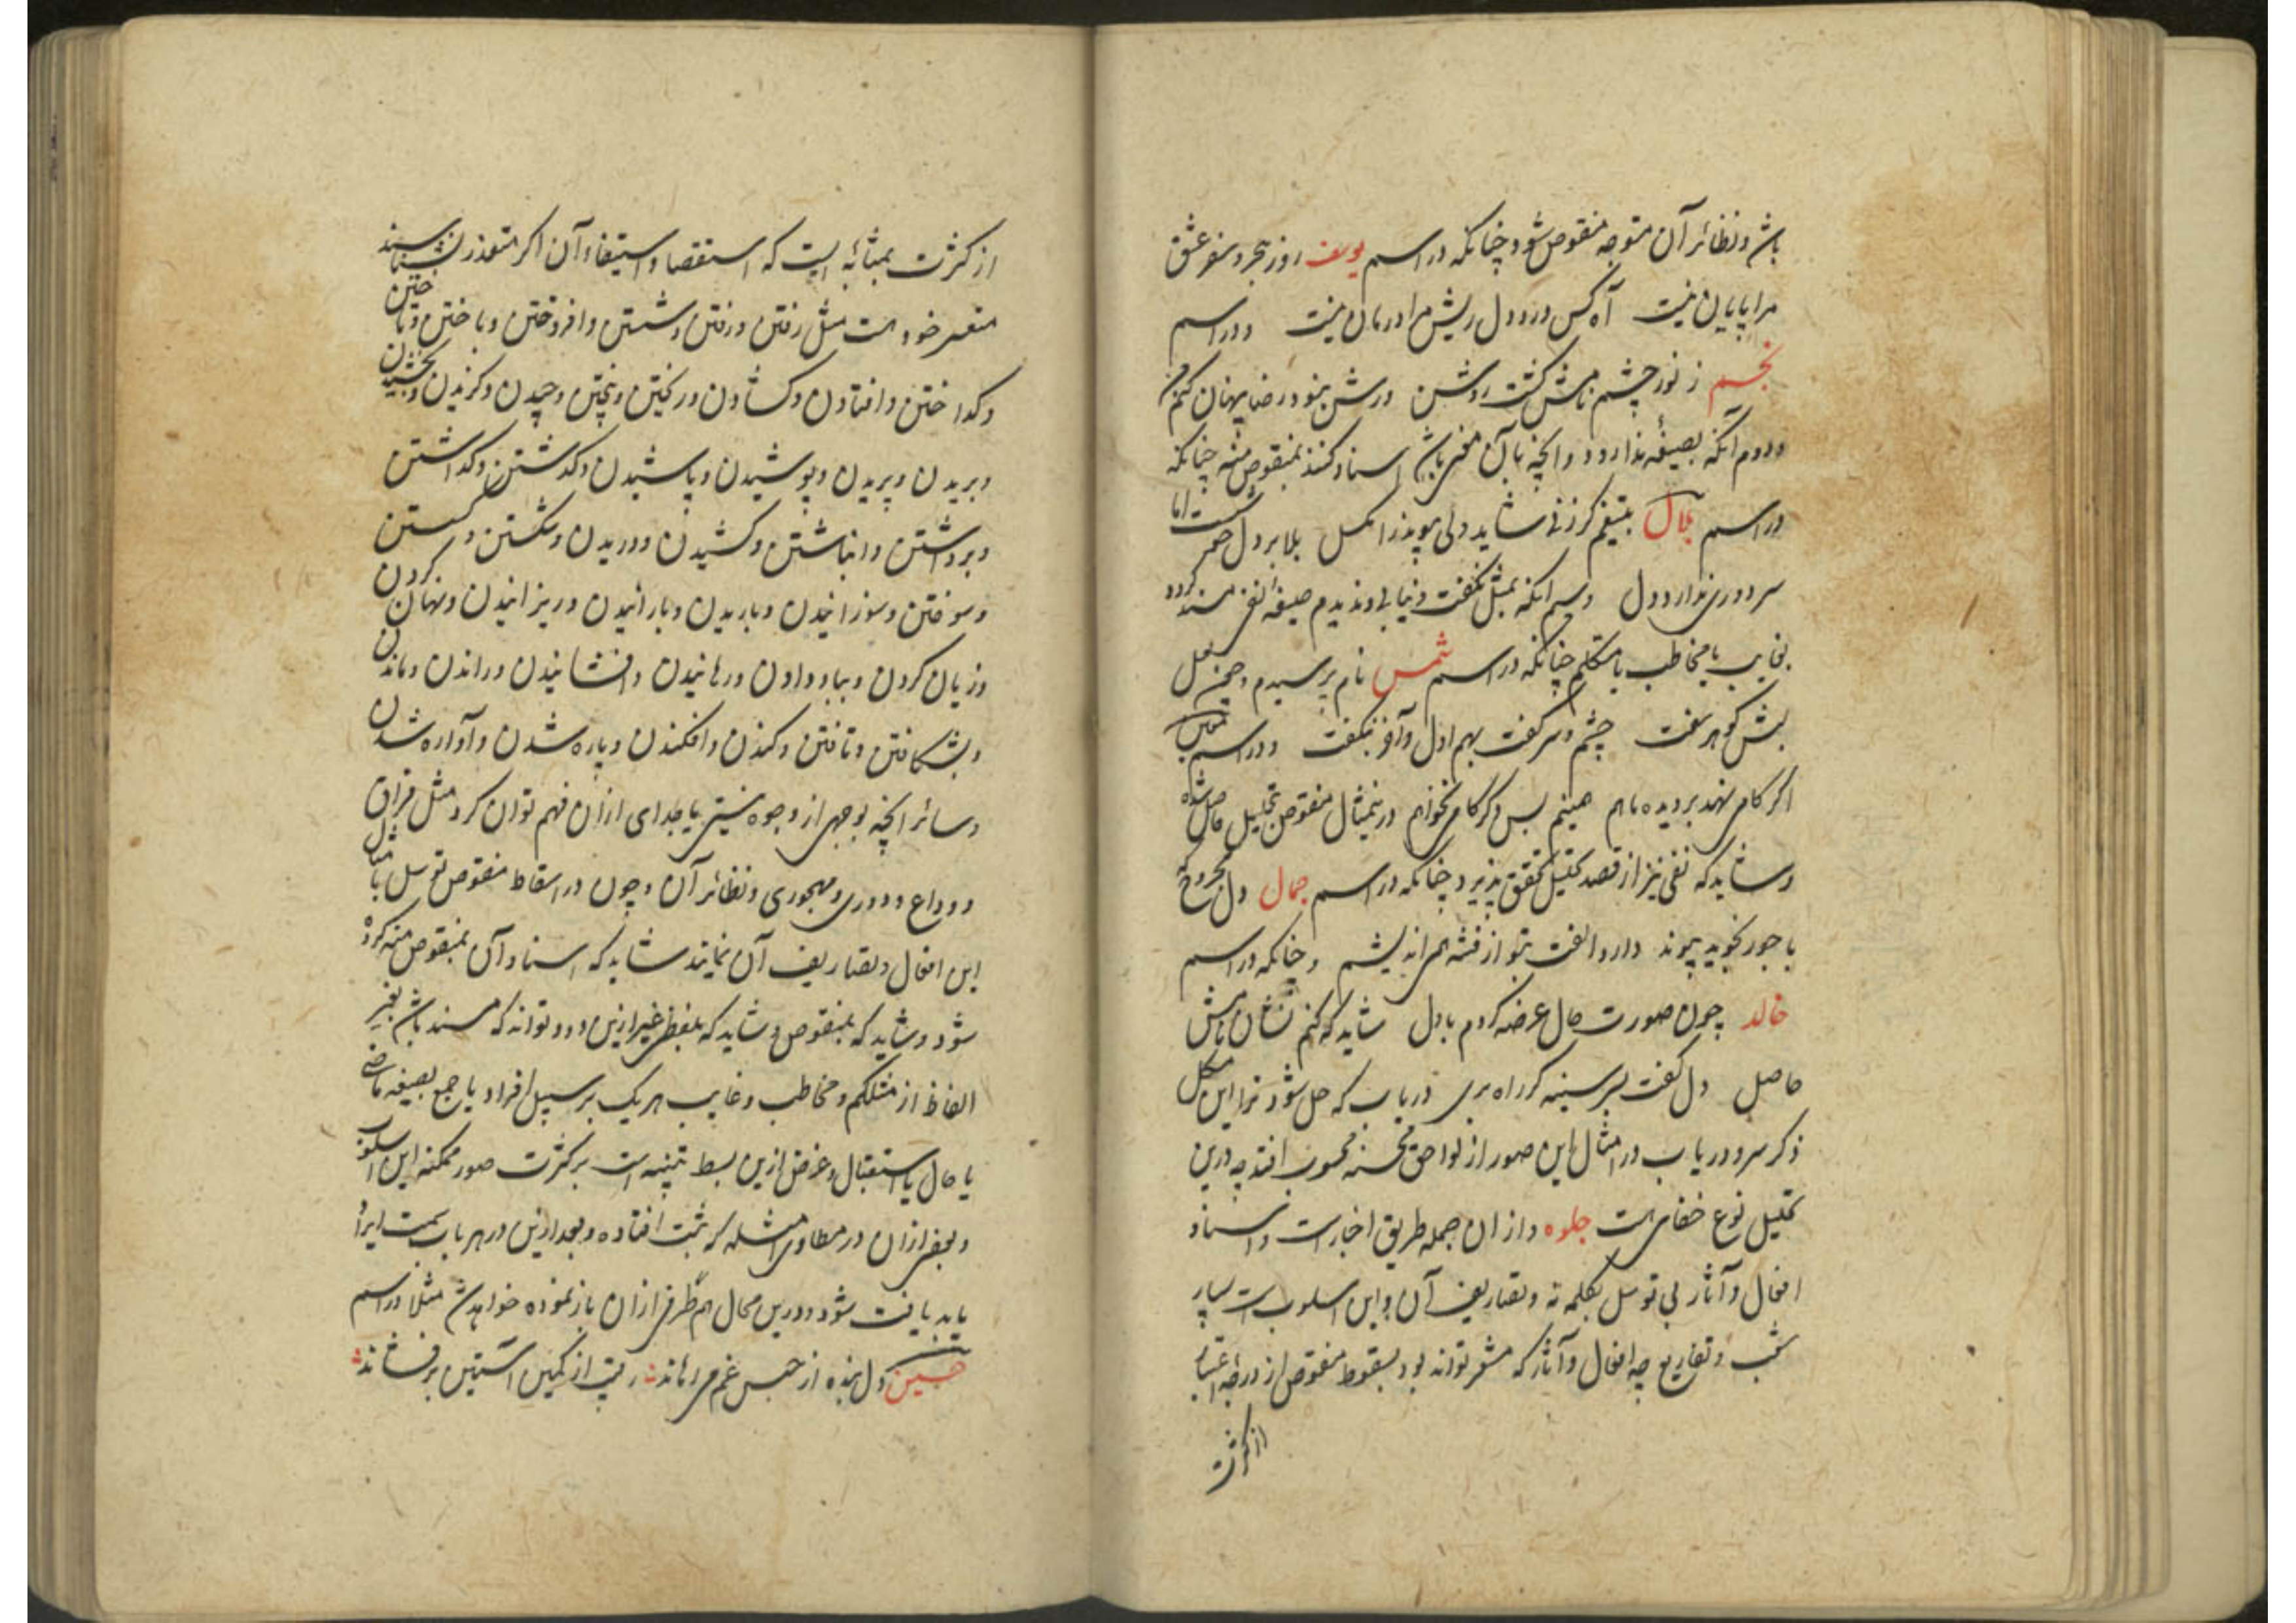 باشد و نظائر آن متوجه منقوص شود چنانکه در اسم یوسف روز هجر و سفر عشق
مرا پایان نیست آه کس درد دل ریش مرا درمان نیست و در اسم
نجم ز نور چشم باشش کشت روشن درشن نمود رضا پنهان کنم من
و دوم آنکه بصیغه ندارد و آنچه بآن مخبر باشد اسناد کنند بمنقوص منه چنانکه
در اسم بلال بتیغم کر زنی شاید دلی پیوند را مکسل بلا بر دل
سر دوری ندارد دل و سیم آنکه بمثل نکفت و نیابی و ندیدم صیغه نفی مسند کردد
بغایب یا مخاطب یا متکلم چنانکه در اسم شمس نام پرسیدم و چین لعل
لبش کوهر سفت چشم و سر کفت بهم اول و آخر نکفت و در اسم
اکر کام نهد بر دیده ماهم همینم بس دکر کامی نخواهم درینمثال منقوص بتحلیل حاصل شده
و شاید که نفی نیز از قصد تحلیل تحقق پذیرد چنانکه در اسم جمال دل مجروح
با جور نجوید پیوند دارد الفت بتو از فتنه هم اندیشم و چنانکه در اسم
خالد چون صورت حال عرضه کردم با دل شاید که کنم نشان باشش
حاصل دل کفت بر سینه کر راه بری دریاب که حل شود ترا این مشکل
ذکر سر و دریاب در امثال این صور از لواحق محسنه محسوب افتد چه درین
تحلیل نوع خفایی هست جلوه و از آن جمله طریق اخبارست و اسناد
افعال و آثار بی توسل بکلمه نه و تصاریف آن و این اسلوب است بسیار
شعب و تفاریع چه افعال و آثار که مشعر تواند بود بسقوط منقوص از درجه اعتبار
از کثرت
از کثرت بمثابه ایست که استقصا و استیفاء آن اکر متعذر نشناسند
متعسر خود هست مثل رفتن و رفتن و شستن و افروختن و باختن و تاختن
و کداختن و افتادن و کشادن و ریختن و پختن و چیدن و کزیدن و بخشیدن
و بریدن و پریدن و پوشیدن و پاشیدن و کذشتن و کذاشتن
و برداشتن و انباشتن و کشیدن و دریدن و شکستن و کسستن
و سوختن و سوزانیدن و باریدن و بارانیدن و ریزانیدن و نهان کردن
و زیان کردن و بباد دادن و رهانیدن و افشانیدن و راندن و ماندن
و بشکافتن و تافتن و کندن و افکندن و پاره شدن و آواره شدن
و سائر آنچه بوجهی از وجوه نیستی یا جدای ازان فهم توان کرد مثل فراق
و وداع و دوری و مهجوری و نظائر آن و چون در اسقاط منقوص توسل بامثال
این افعال و تصاریف آن نمایند شاید که اسناد آن بمنقوص منه کرده
شود و شاید که بمنقوص و شاید که بلفظی غیر ازین دو و تواند که مسند باشد بغیر
الفاظ از متکلم و مخاطب و غایب هر یک بر سبیل افراد یا جمع بصیغه ماضی
یا حال یا استقبال و غرض ازین بسط تنبیه است بر کثرت صور ممکنه این اسلوب
و بعضی ازان در مطاوی امثله که ثبت افتاده و بعد ازین در هر باب سمت ایراد
یابد یافت شود و درین محال هم طرفی ازان باز نموده خواهد شد مثلا در اسم
حسین دل بنده از حبس غم می رهاند رقیب از کمین آستین بر فشاند